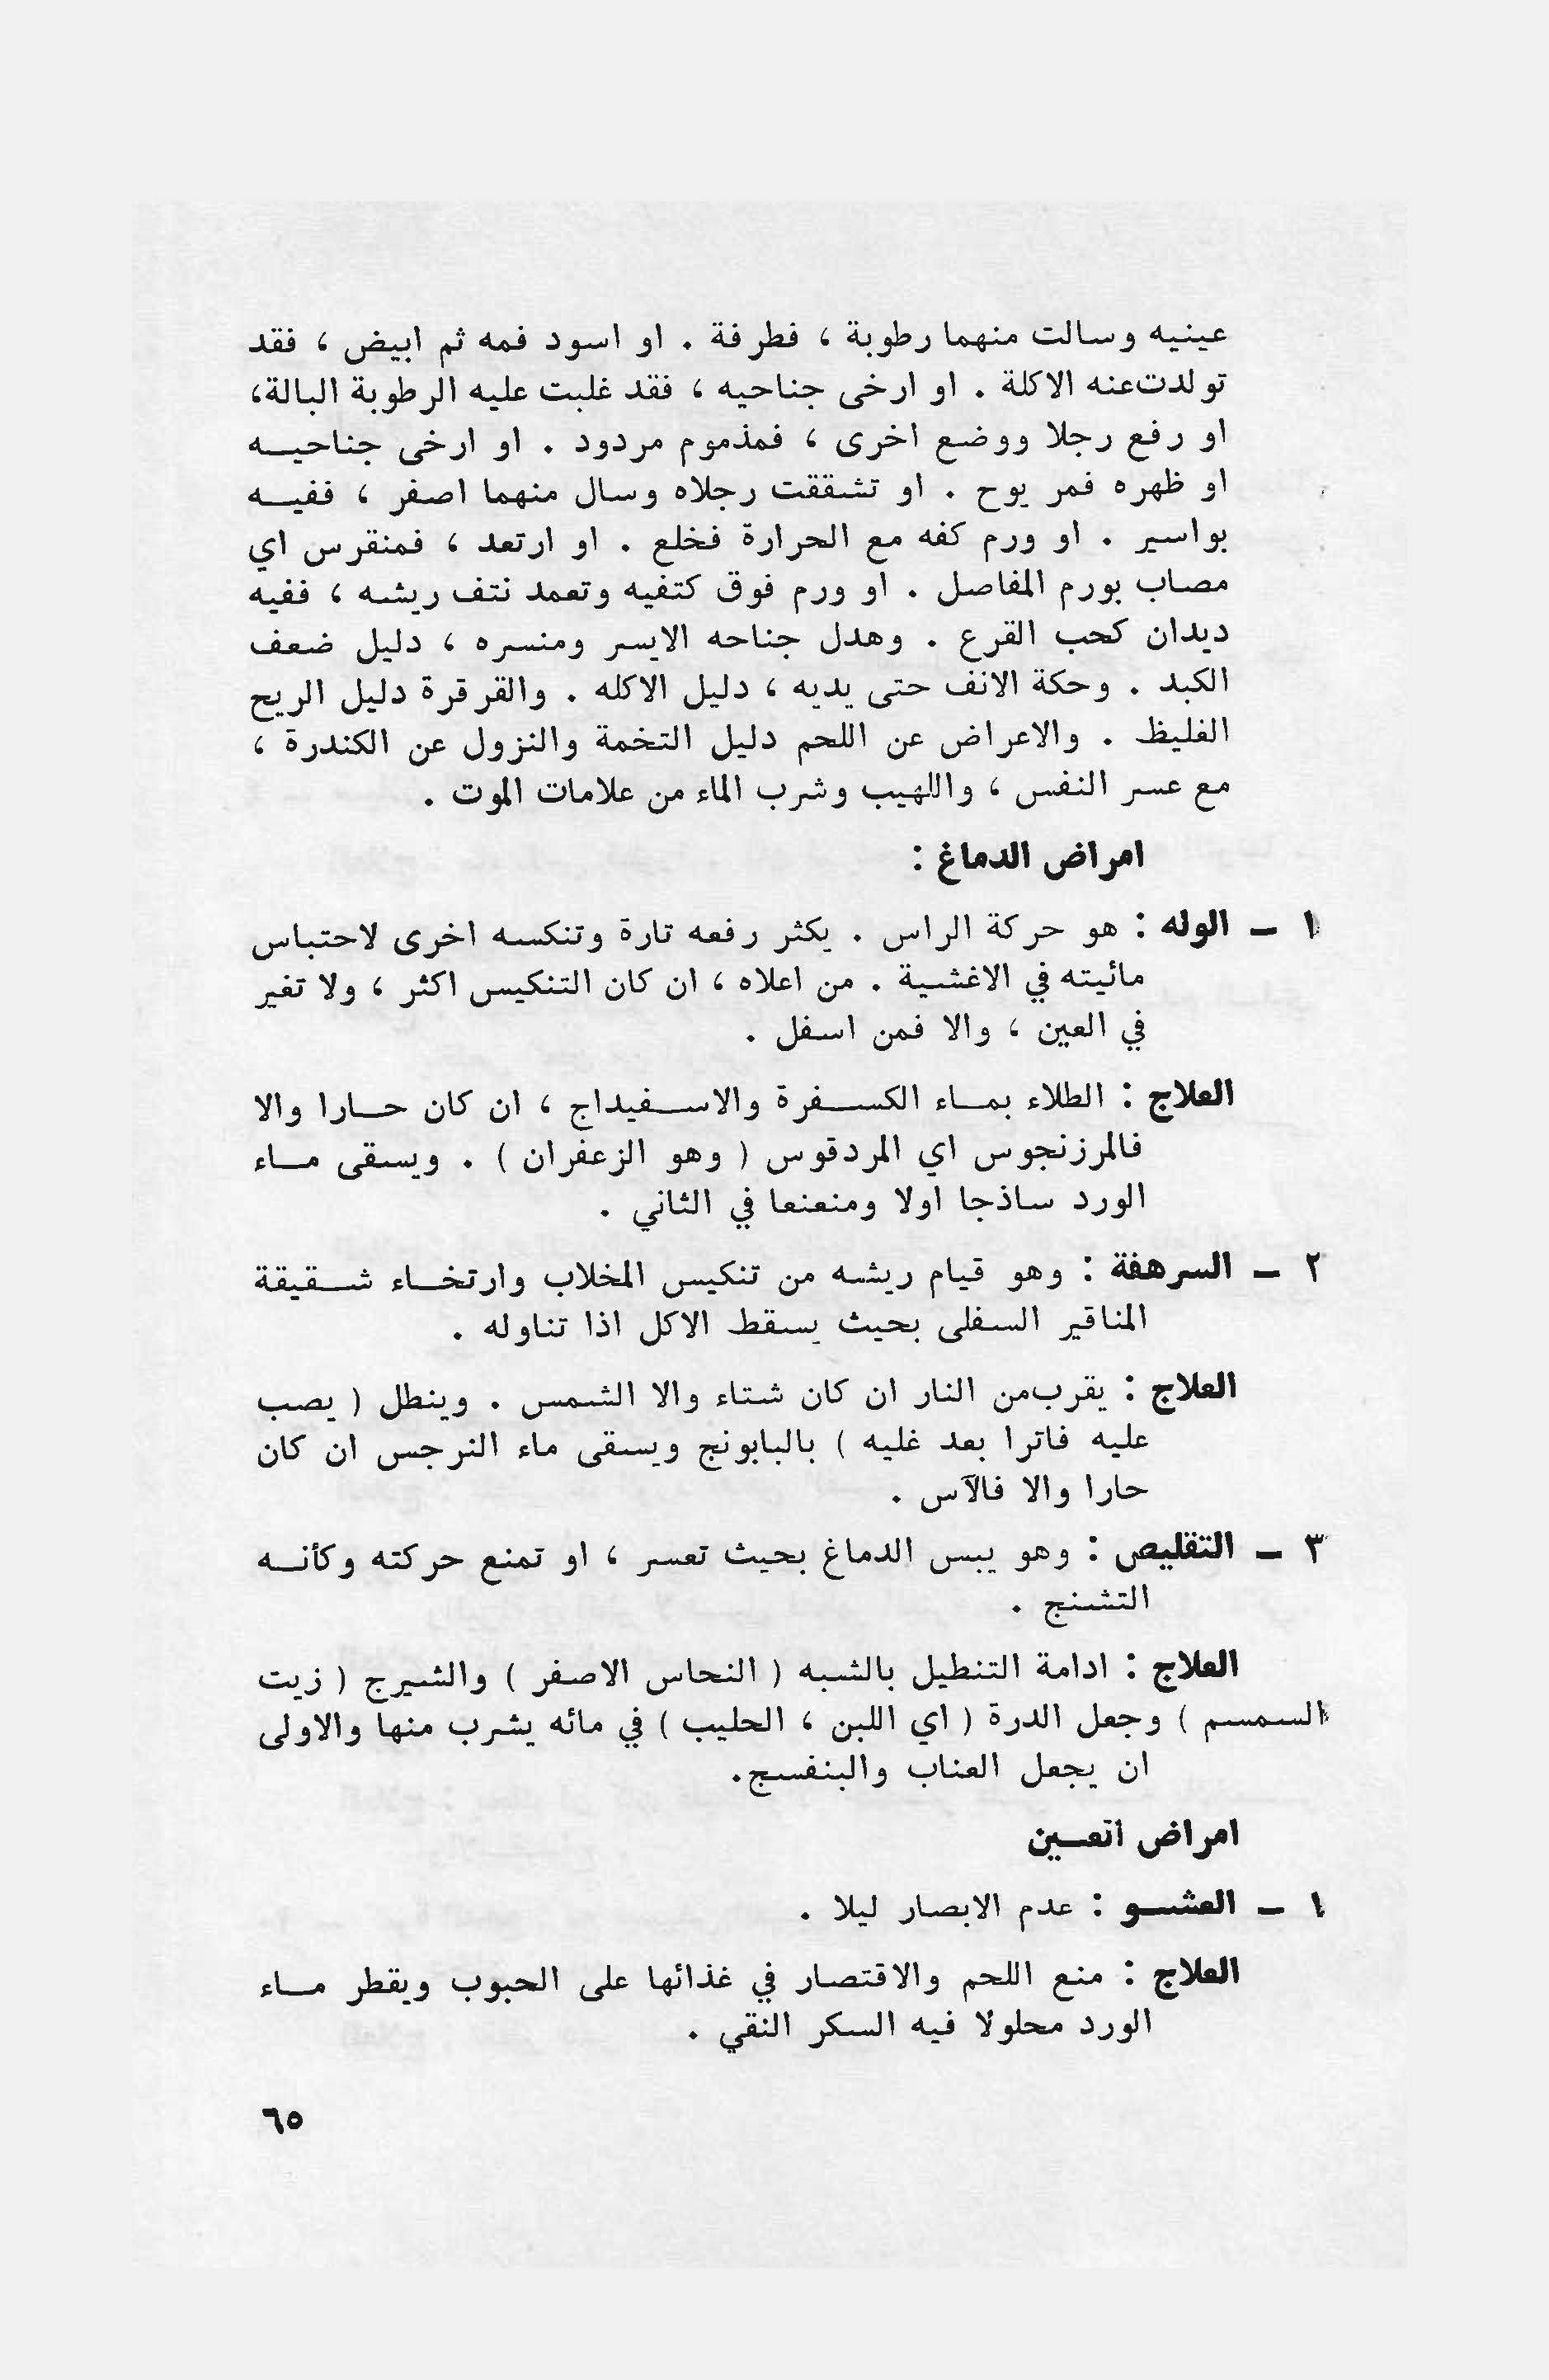 عينيه وسالت منهما رطوبة ، فطرفة . او اسود فمه ثم ابيض ، فقد
تولدت عنه الاكلة . او ارخى جناحيه ، فقد غلبت عليه الرطوبة البالة،
او رفع رجلا ووضع اخرى ، فمذموم مردود . او ارخى جناحيـــه
او ظهره فمر يوح . او تشققت رجلاه وسال منهما اصفر ، ففيـــه
بواسير . او ورم كفه مع الحرارة فخلع . او ارتعد ، فمنقرس اي
مصاب بورم المفاصل . او ورم فوق كتفيه وتعمد نتف ريشه ، ففيه
ديدان كحب القرع . وهدل جناحه الايسر ومنسره ، دليل ضعف
الكبد . وحكة الانف حتى يدبه ، دليل الاكله . والقرقرة دليل الريح
الغليظ . والاعراض عن اللحم دليل التخمة والنزول عن الكندرة ،
مع عسر النفس ، واللهيب وشرب الماء من علامات الموت .
امراض الدماغ :
١ ـ الوله : هو حركة الراس . يكثر رفعه تارة وتنكسه اخرى لاحتباس
مائيته في الاغشية . من اعلاه ، ان كان التنكيس اكثر ، ولا تغير
في العين ، والا فمن اسفل .
العلاج : الطلاء بمـــاء الكســـفرة والاســـفيداج ، ان كان حـــارا والا
فالمرزنجوس اي المردقوس ( وهو الزعفران ) . ويسقى مـــاء
الورد ساذجا اولا ومنعنعا في الثاني .
٢ ـ السرهفة : وهو قيام ريشه من تنكيس المخلاب وارتخـــاء شـــقيقة
المناقير السفلى بحيث يسقط الاكل اذا تناوله .
العلاج : يقرب من النار ان كان شتاء والا الشمس . وينطل ( يصب
عليه فاترا بعد غليه ) بالبابونج ويسقى ماء النرجس ان كان
حارا والا فالآس .
٣ ـ التقليص : وهو يبس الدماغ بحيث تعسر ، او تمنع حركته وكأنـــه
التشنج .
العلاج : ادامة التنطيل بالشبه ( النحاس الاصفر ) والشيرج ( زيت
السمسم ) وجعل الدرة ( اي اللبن ، الحليب ) في مائه يشرب منها والاولى
ان يجعل العناب والبنفسج.
امراض العـــين
١ ـ العشـــو : عدم الابصار ليلا .
العلاج : منع اللحم والاقتصار في غذائها على الحبوب ويقطر مـــاء
الورد محلولا فيه السكر النقي .
٦٥